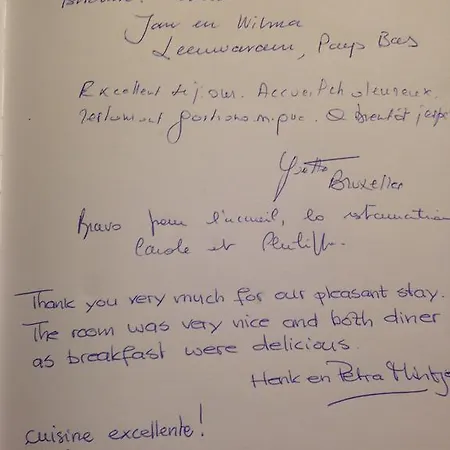 Jan en Wilma
Leeuwarden, Pays Bas
Excellent séjour. Accueil chaleureux.
gastronomique. A bientôt j'esp
Yvette
Bruxelles
Bravo pour l'accueil, la restauration
Carole et
Thank you very much for our pleasant stay.
The room was very nice and both diner
as breakfast were delicious.
Henk en Petra
cuisine excellente!